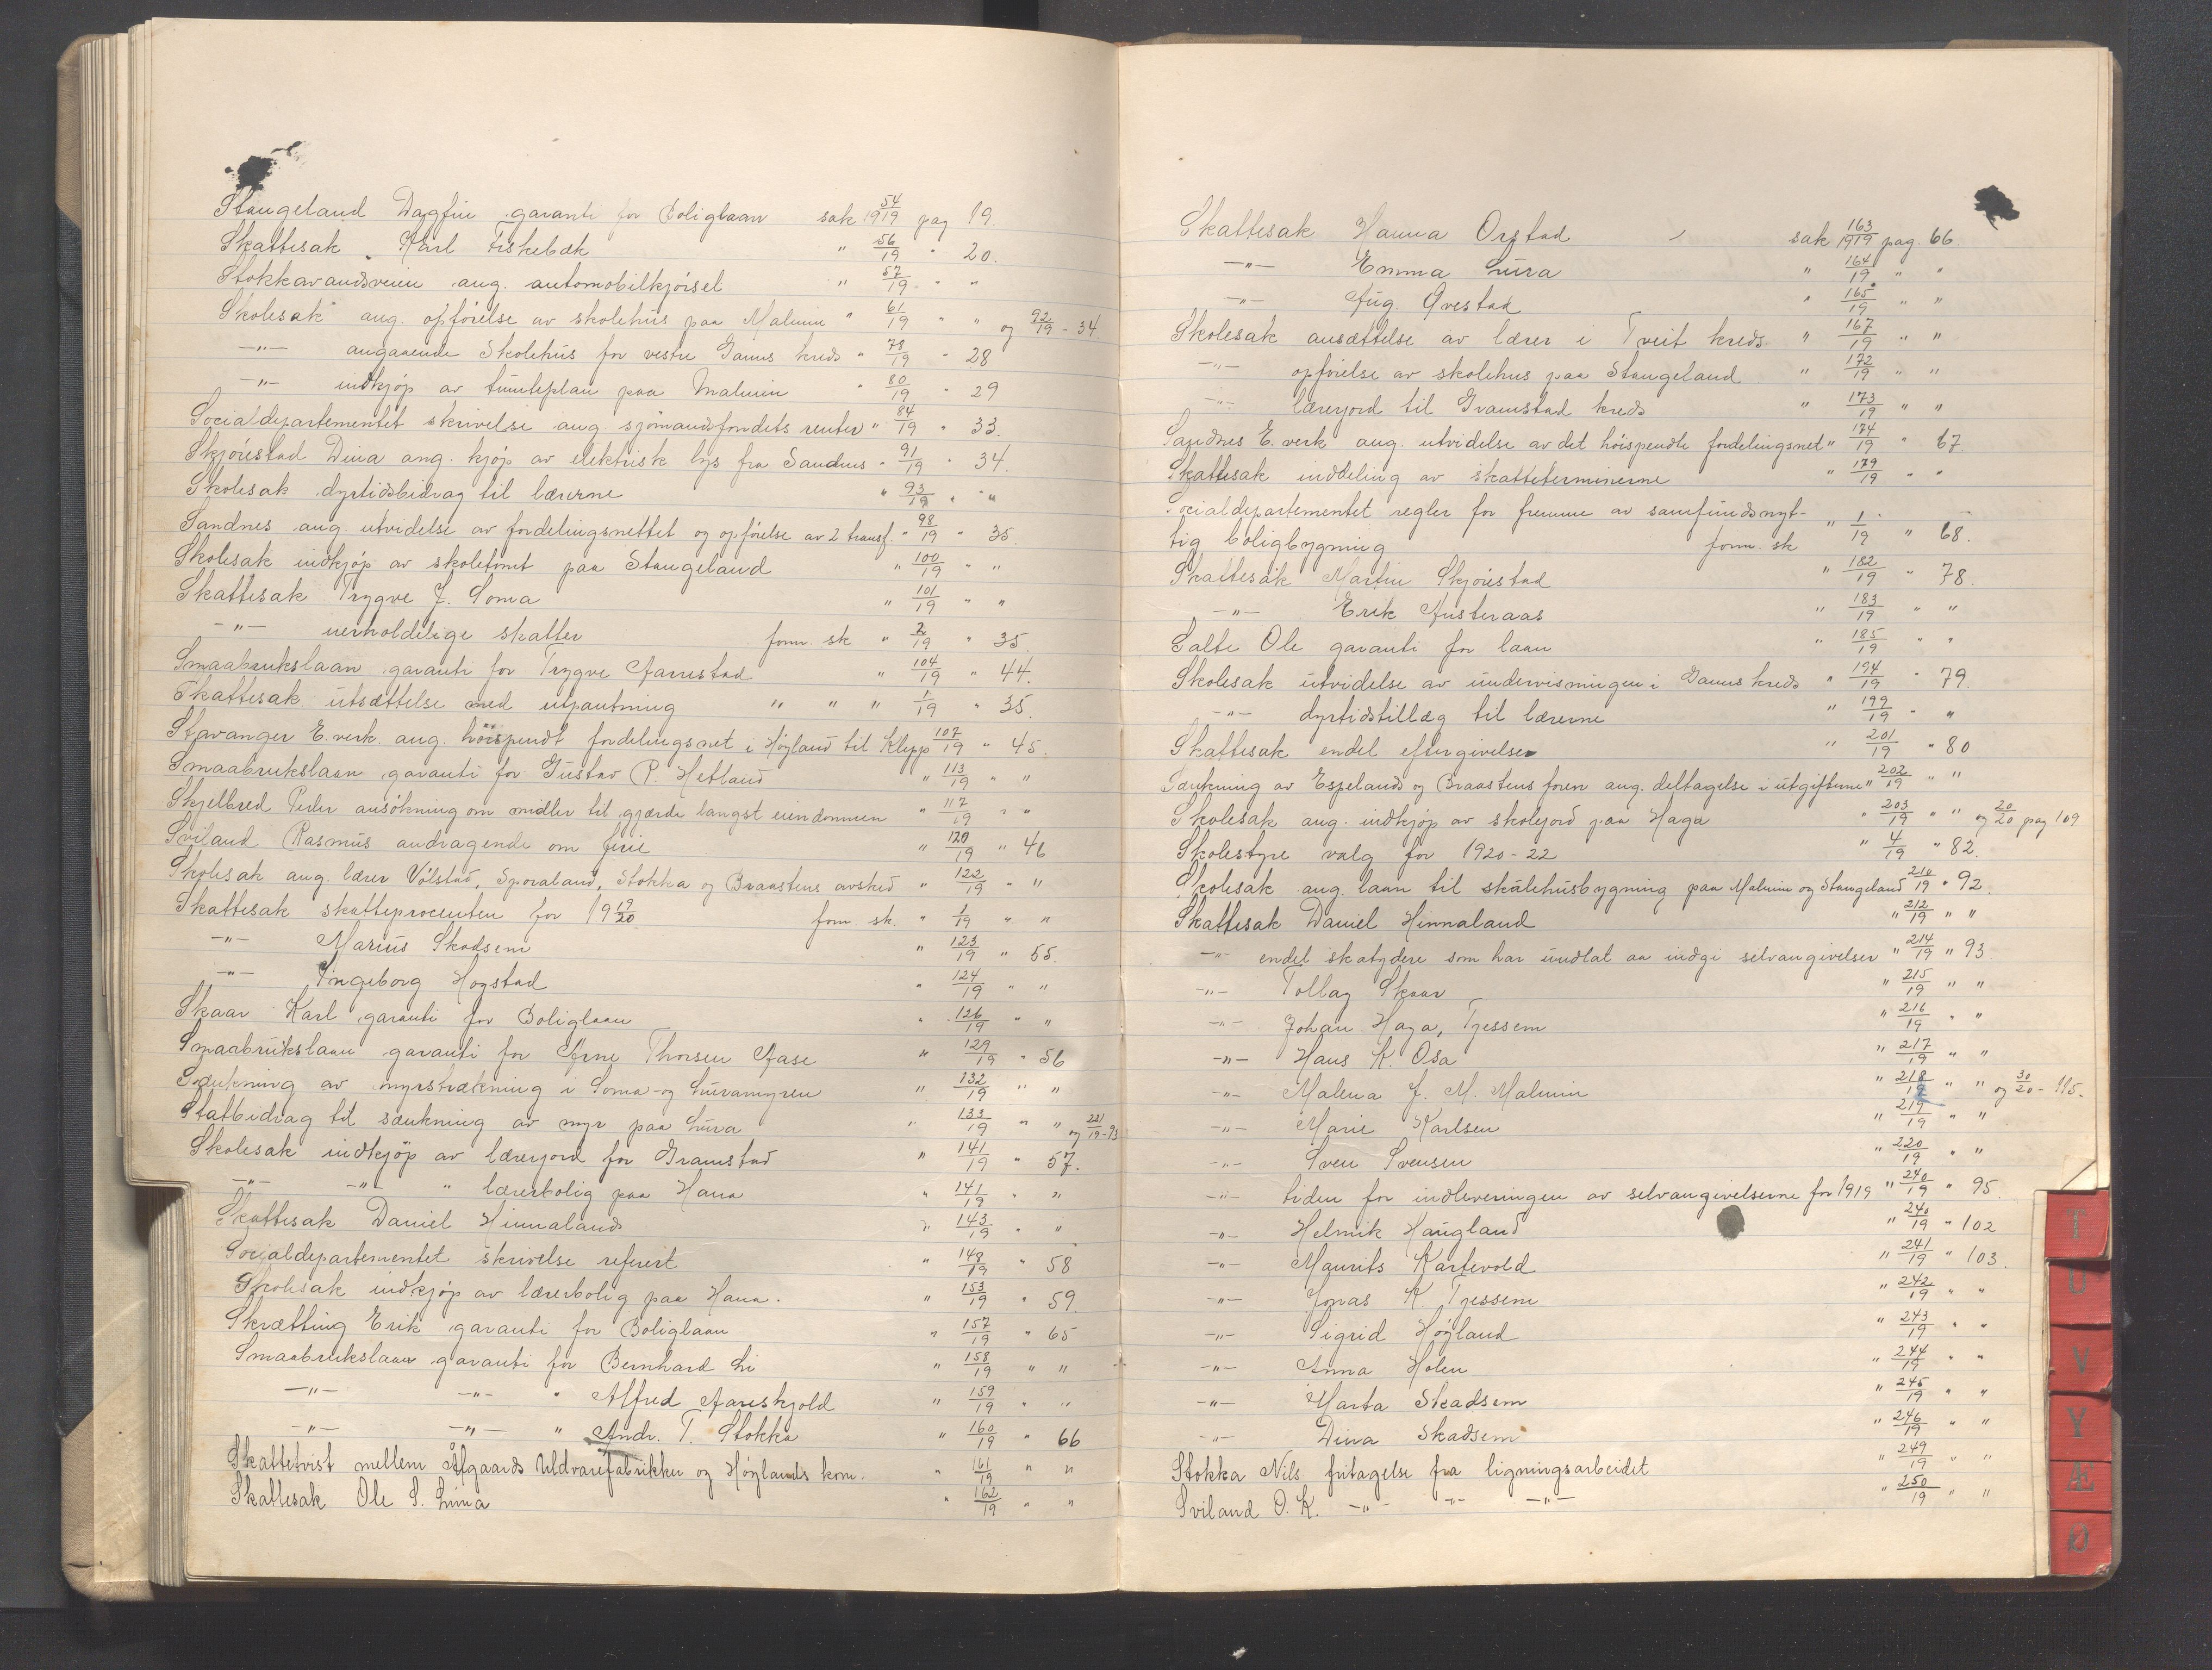 Stangeland Dagfin garanti for Boliglaan sak 54/1919 pag 19
Skattesak Karl Fiskebæk " 56/19 " 20.
Stokkavandsveien ang. automobilkjörsel " 57/19 " "
Skolesak ang. opförelse av skolehus paa Malmin " 61/19 " " og 92/19 - 34
-"- angaaende Skolehus for vestre Ganns kreds " 78/19 " 28
-"- indkjöp av tomteplan paa Malmin " 80/19 " 29
Socialdepartementet skrivelse ang. sjömandsfondets renter " 84/19 " 33.
Skjörestad Dina ang. kjöp av elektrisk lys fra Sandnes " 91/19 " 34.
Skolesak dyrtidsbidrag til lærerne " 93/19 " "
Sandnes ang. utvidelse av fordelingsnettet og opförelse av 2 transf. " 98/19 " 35.
Skolesak indkjöp av skoletomt paa Stangeland " 100/19 " "
Skattesak Trygve J. Soma " 101/19 " "
-"- uerholdelige skatter form. sk " 2/19 " 35.
Smaabrukslaan garanti for Trygve Aarrestad " 104/19 " 44.
Skattesak utsættelse med utpantning " " " 1/19 " 35.
Stavanger E.verk. ang. höispendt fordelingsnet i Høyland til Klepp 107/19 " 45.
Smaabrukslaan garanti for Gustav P. Hetland " 113/19 " "
Skjelbred Peder ansökning om midler til gjærde langst eiendommen " 117/19 " "
Sviland Rasmus andragende om ferie " 120/19 " 46
Skolesak ang. lærer Vølstad, Sporaland, Stokka og Braastens avsked " 122/19 " "
Skattesak skatteprocenten for 19 19/20 form. sk. " 1/19 " "
-"- Marius Skadsem " 123/19 " 55.
-"- Ingeborg Hogstad " 124/19 " "
Skaar Karl garanti for Boliglaan " 126/19 " "
Smaabrukslaan garanti for Arne Thorsen Aase " 129/19 " 56
Sænkning av myrstrækning i Soma- og Luramyren " 132/19 " "
Statbidrag til sænkning av myr paa Lura " 133/19 " " og 221/19 - 93
Skolesak indkjöp av lærerjord for Gramstad " 141/19 " 57.
-"- -"- " lærerbolig paa Hana " 141/19 " "
Skattesak Daniel Hinnaland " 143/19 " "
Socialdepartementet skrivelse referert " 148/19 " 58
Skolesak indkjöp av lærerbolig paa Hana. " 153/19 " 59.
Skrætting Erik garanti for Boliglaan " 157/19 " 65
Smaabrukslaan garanti for Bernhard Li " 158/19 " "
-"- -"- " Alfred Aareskjold " 159/19 " "
-"- -"- " Andr. T. Stokka " 160/19 " 66
Skattetvist mellem Ålgaards Uldvarefabrikker og Høylands kom. " 161/19 " "
Skattesak Ole S. Lima " 162/19 " "
Skattesak Hanna Orstad sak 163/1919 pag. 66.
-"- Emma Lura " 164/19 " "
-"- Aug. Qvestad " 165/19 " "
Skolesak ansættelse av lærer i Tveit kreds " 167/19 " "
-"- opförelse av skolehus paa Stangeland " 172/19 " "
-"- lærerjord til Gramstad kreds " 173/19 " "
Sandnes E.verk ang. utvidelse av det höispendte fordelingsnet " 174/19 " 67.
Skattesak inddeling av skatteterminerne " 179/19 " "
Socialdepartementet regler for fremme av samfundsnyt-
tig boligbygning form. sk " 1/19 " 68.
Skattesak Martin Skjörestad " 182/19 " 78.
-"- Erik Austeraas " 183/19 " "
Salte Ole garanti for laan " 185/19 " "
Skolesak utvidelse av undervisningen i Ganns kreds " 194/19 " 79.
-"- dyrtidstillæg til lærerne " 199/19 " "
Skattesak endel eftergivelser " 201/19 " 80
Sænkning av Espelands og Braastens foren ang. deltagelse i utgifterne " 202/19 " "
Skolesak ang. indkjöp av skolejord paa Haga " 203/19 " " og 20/20 pag 109
Skolestyre valg for 1920-22 " 4/19 " 82.
Skolesak ang. laan til skolehusbygning paa Malmin og Stangeland 210/19 " 92.
Skattesak Daniel Hinnaland " 212/19 " "
-"- endel skatydere som har undlat aa indgi selvangivelser " 214/19 " 93.
-"- Tollag Skaar " 215/19 " "
-"- Johan Haga, Tjessem " 216/19 " "
-"- Hans K. Osa " 217/19 " "
-"- Malena J. M. Malmin " 218/19 " " og 30/20 - 115.
-"- Marie Karlsen " 219/19 " "
-"- Sven Svensen " 220/19 " "
-"- tiden for indleveringen av selvangivelserne for 1919 " 240/19 " 95.
-"- Helmik Haugland " 240/19 " 102
-"- Maurits Kartevold " 241/19 " 103.
-"- Jonas K Tjessem " 242/19 " "
-"- Sigrid Høyland " 243/19 " "
-"- Anna Holen " 244/19 " "
-"- Marta Skadsem " 245/19 " "
-"- Dina Skadsem " 246/19 " "
Stokka Nils fritagelse fra ligningsarbeidet " 249/19 " "
Sviland O. K. -"- -"- -"- " 250/19 " "
T
U
V
Y
Æ
Ø